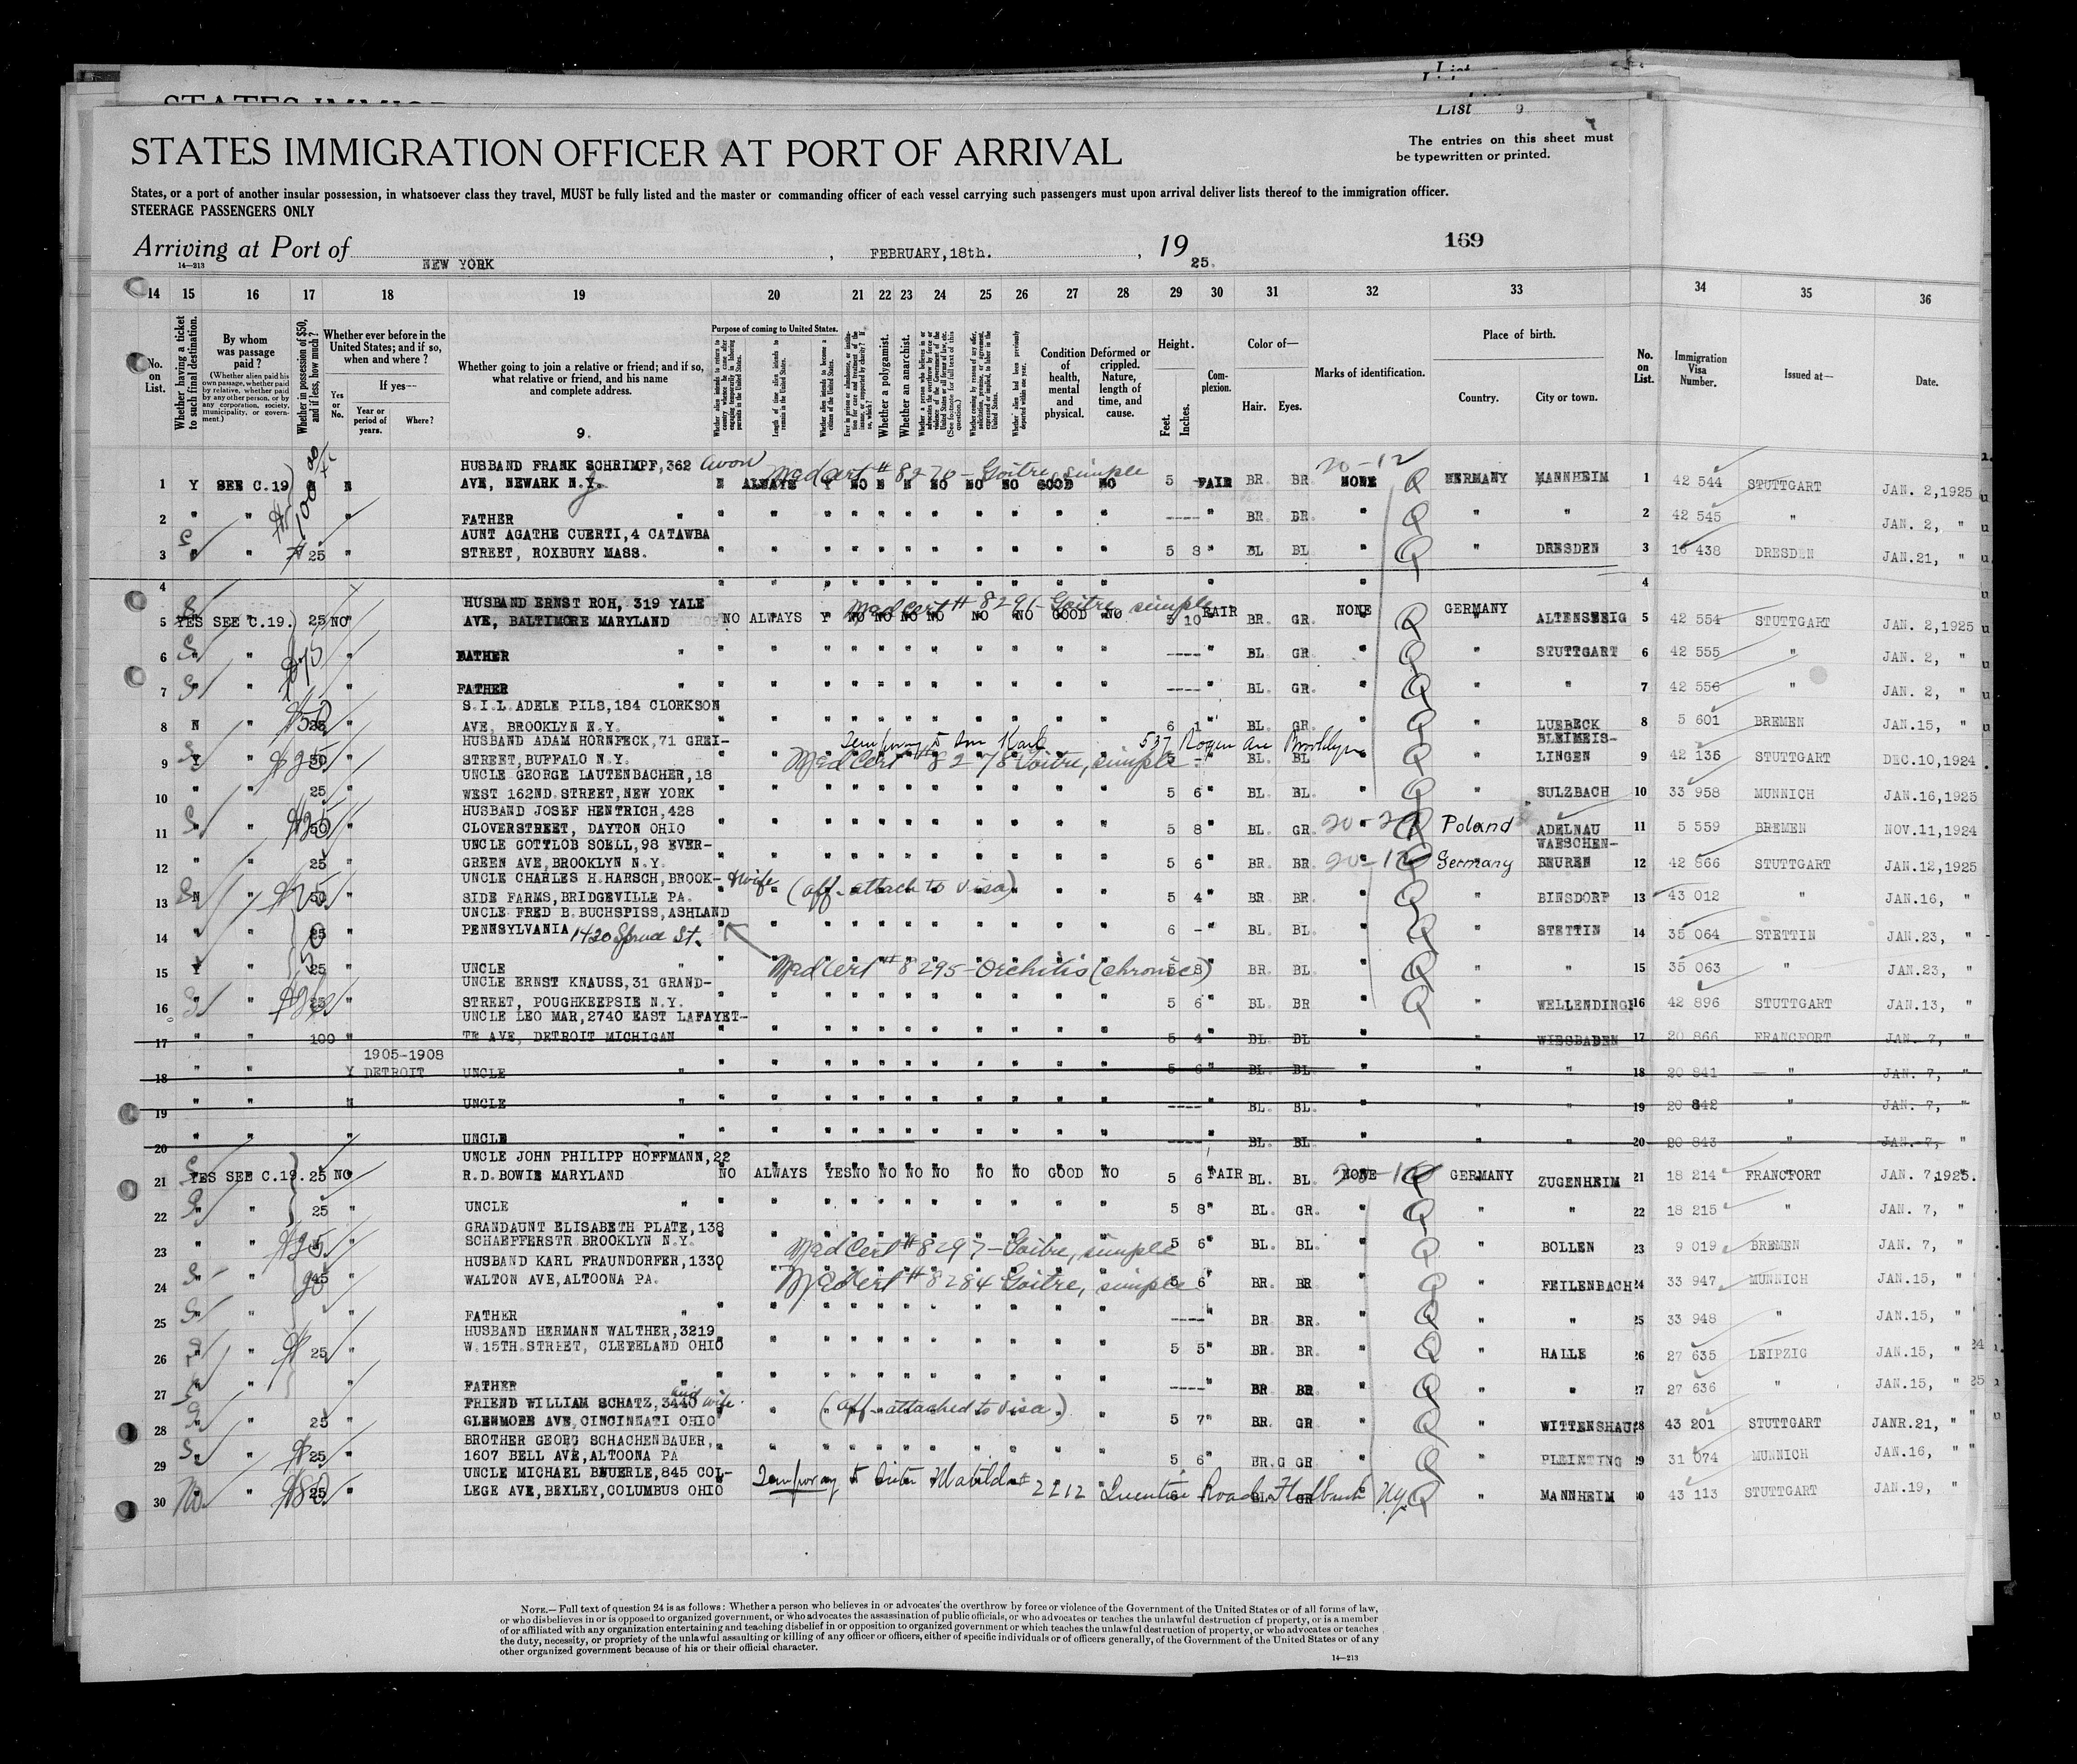 List 9
STATES IMMIGRATION OFFICER AT PORT OF ARRIVAL
The entries on this sheet must
be typewritten or printed.
States, or a port of another insular possession, in whatsoever class they travel, MUST be fully listed and the master or commanding officer of each vessel carrying such passengers must upon arrival deliver lists thereof to the immigration officer.
STEERAGE PASSENGERS ONLY
Arriving at Port of NEW YORK, FEBRUARY,18th., 19 25.
169
14—213
14 15 16 17 18 19 20 21 22 23 24 25 26 27 28 29 30 31 32 33 34 35 36
No. on List.
Whether having a ticket to such final destination.
By whom was passage paid?
(Whether alien paid his own passage, whether paid by relative, whether paid by any other person, or by any corporation, society, municipality, or government.)
Whether in possession of $50, and if less, how much?
Whether ever before in the United States; and if so, when and where?
Yes or No.
If yes—
Year or period of years.
Where?
Whether going to join a relative or friend; and if so, what relative or friend, and his name and complete address.
9.
Purpose of coming to United States.
Length of time alien intends to remain in the United States.
Whether alien intends to become a citizen of the United States.
Whether a polygamist.
Whether an anarchist.
Condition of health, mental and physical.
Deformed or crippled. Nature, length of time, and cause.
Height.
Feet.
Inches.
Complexion.
Color of—
Hair.
Eyes.
Marks of identification.
Place of birth.
Country.
City or town.
No. on List.
Immigration Visa Number.
Issued at—
Date.
HUSBAND FRANK SCHRIMPF,362 Avon Med Cert # 8270 - Goitre, simple 20-12
1 Y SEE C.19 N AVE, NEWARK N.Y. N ALWAYS Y NO N N NO NO NO GOOD NO 5 - FAIR BR. BR. NONE GERMANY MANNHEIM 1 42 544 STUTTGART JAN. 2,1925
2 " " " FATHER " ---- " BR. BR. " " " 2 42 545 " JAN. 2, "
AUNT AGATHE CUERTI,4 CATAWBA
3 " " 25 " STREET, ROXBURY MASS. 5 8 " BL BL " " DRESDEN 3 16 438 DRESDEN JAN.21, "
4 4
HUSBAND ERNST ROH, 319 YALE Med cert # 8291 - Goitre simple
5 YES SEE C.19. 25 NO AVE, BALTIMORE MARYLAND NO ALWAYS Y NO NO NO NO NO NO GOOD NO 5 10 FAIR BR. GR. NONE GERMANY ALTENSTEIG 5 42 554 STUTTGART JAN. 2,1925
6 " " $75 " FATHER " ---- " BL GR. " " STUTTGART 6 42 555 " JAN. 2, "
7 " " " FATHER " ---- " BL. GR. " " " 7 42 556 " JAN. 2, "
S.I.L ADELE PILS,184 CLORKSON
8 N " 25 " AVE. BROOKLYN N.Y. 6 1 " BL. GR. " " LUEBECK 8 5 601 BREMEN JAN.15, "
HUSBAND ADAM HORNFECK,71 GREI- Karl 537 Rogers Ave Brooklyn BLEIMEIS-
9 Y " $25 " STREET,BUFFALO N.Y. Med Cert # 8278 Goitre, simple 5 - BL. BL " " LINGEN 9 42 135 STUTTGART DEC.10,1924
UNCLE GEORGE LAUTENBACHER,18
10 " " 25 " WEST 162ND STREET,NEW YORK 5 6 " BL. BL. " " SULZBACH 10 33 958 MUNNICH JAN.16,1925
HUSBAND JOSEF HENTRICH,428
11 " " 50 " CLOVERSTREET, DAYTON OHIO 5 8 " BL. GR. Poland ADELNAU 11 5 559 BREMEN NOV.11,1924
UNCLE GOTTLOB SOELL,98 EVER- WAESCHEN-
12 " " 25 " GREEN AVE,BROOKLYN N.Y. 5 6 " BR. BR. 20-12 Germany BEUREN 12 42 866 STUTTGART JAN.12,1925
UNCLE CHARLES H.HARSCH,BROOK- & wife (aff. attach to visa)
13 N " 50 " SIDE FARMS, BRIDGEVILLE PA. 5 4 " BR. BR. " " BINSDORF 13 43 012 " JAN.16, "
UNCLE FRED B.BUCHSPISS,ASHLAND
14 " " 25 " PENNSYLVANIA 1420 Spruce St. 6 - " BL. BL. " " STETTIN 14 35 064 STETTIN JAN.23, "
15 Y " 25 " UNCLE " Med Cert # 8295 - Orchitis (chronic) 5 8 BR. BL. " " " 15 35 063 " JAN.23, "
UNCLE ERNST KNAUSS,31 GRAND-
16 " " 25 " STREET, POUGHKEEPSIE N.Y. 5 6 " BL. BR " " WELLENDING 16 42 896 STUTTGART JAN.13, "
UNCLE LEO MAR,2740 EAST LAFAYET-
17 " " 100 " TE AVE, DETROIT MICHIGAN 5 4 " BL. BL " " WIESBADEN 17 20 866 FRANCFORT JAN. 7, "
1905-1908
18 " " Y DETROIT UNCLE " 5 6 " BL. BL. " " " 18 20 841 " JAN. 7, "
19 " " N UNCLE " ---- " BL. BL. " " " 19 20 842 " JAN. 7, "
20 " " " UNCLE " ---- " BL. BL " " " 20 20 843 " JAN. 7, "
UNCLE JOHN PHILIPP HOFFMANN,22
21 YES SEE C.19. 25 NO R.D.BOWIE MARYLAND NO ALWAYS YES NO NO NO NO NO NO GOOD NO 5 6 FAIR BL. BL. NONE GERMANY ZUGENHEIM 21 18 214 FRANCFORT JAN. 7,1925.
22 " " 25 " UNCLE " 5 8 " BL. GR. " " " 22 18 215 " JAN. 7, "
GRANDAUNT ELISABETH PLATE,138
23 " " $25 " SCHAEFFERSTR BROOKLYN N.Y. Med Cert # 8297 - Goitre, simple 5 6 " BL. BL. " " BOLLEN 23 9 019 BREMEN JAN. 7, "
HUSBAND KARL FRAUNDORFER,1330
24 " " 45 " WALTON AVE,ALTOONA PA. Med Cert # 8284 Goitre, simple 5 6 " BR. BR " " FEILENBACH 24 33 947 MUNNICH JAN.15, "
25 " " " FATHER " ---- " BR. BR. " " " 25 33 948 " JAN.15, "
HUSBAND HERMANN WALTHER,3219
26 " " 25 " W.15TH.STREET, CLEVELAND OHIO 5 5 " BR. BR. " " HALLE 26 27 635 LEIPZIG JAN.15, " 24
27 " " " FATHER " ---- " BR BR " " " 27 27 636 " JAN.15, " 25
FRIEND WILLIAM SCHATZ,3440 and wife. (aff. attached to visa)
28 " " 25 " GLENMORE AVE,CINCINNATI OHIO 5 7 " BR. GR " " WITTENSHAU 28 43 201 STUTTGART JANR.21, "
BROTHER GEORG SCHACHENBAUER,
29 " " 25 " 1607 BELL AVE,ALTOONA PA 5 6 " BR.G GR " " PLEINTING 29 31 074 MUNNICH JAN.16, "
UNCLE MICHAEL BEUERLE,845 COL- Temporary to sister Matilda 2212 Quentin Road Flatbush N.Y.
30 " " 25 " LEGE AVE,BEXLEY,COLUMBUS OHIO BL. GR " MANNHEIM 30 43 113 STUTTGART JAN.19, "
NOTE.—Full text of question 24 is as follows: Whether a person who believes in or advocates the overthrow by force or violence of the Government of the United States or of all forms of law,
or who disbelieves in or is opposed to organized government, or who advocates the assassination of public officials, or who advocates or teaches the unlawful destruction of property, or is a member
of or affiliated with any organization entertaining and teaching disbelief in or opposition to organized government or which teaches the unlawful destruction of property, or who advocates or teaches
the duty, necessity, or propriety of the unlawful assaulting or killing of any officer or officers, either of specific individuals or of officers generally, of the Government of the United States or of any
other organized government because of his or their official character.
14—213